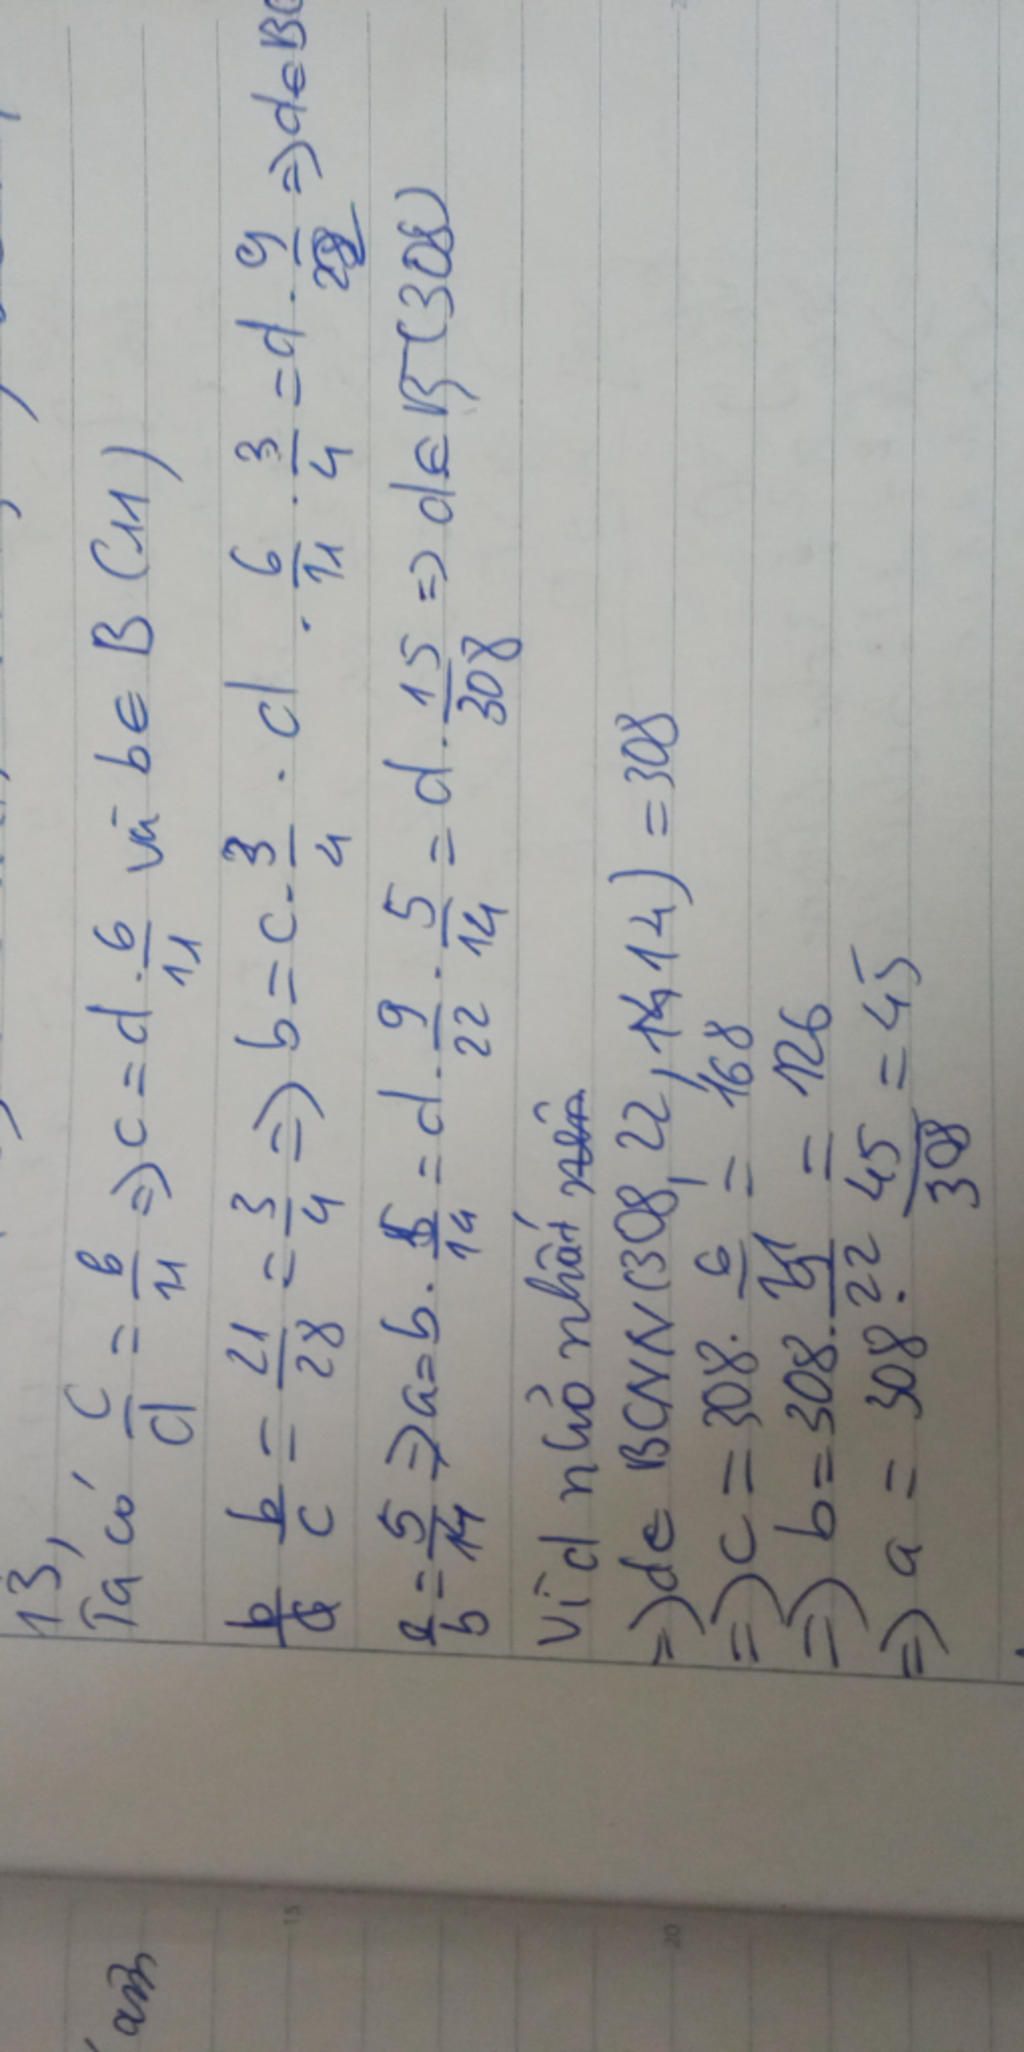 13,
Ta có c/d = 6/11 => c = d . 6/11 và b ∈ B (11)
b/c = 21/28 = 3/4 => b = c . 3/4 . d . 6/11 . 3/4 = d . 9/22 => d ∈ B
a/b = 5/14 => a = b . 5/14 = d . 9/22 . 5/14 = d . 15/308 => d ∈ B (308)
Vì d nhỏ nhất
=> d ∈ BCNN (308, 22, 14, 14) = 308
=> c = 308 . 6/11 = 168
=> b = 308 . 22 = 126
=> a = 308 . 45/308 = 45
15
20